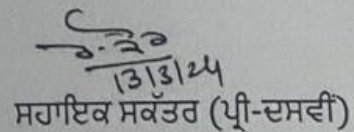 13/3/24
ਸਹਾਇਕ ਸਕੱਤਰ (ਪ੍ਰੀ-ਦਸਵੀਂ)